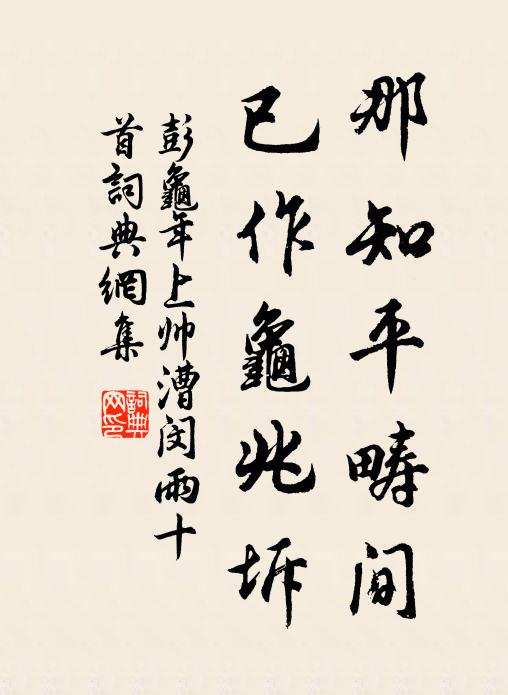 那知平畴間
已作龜兆坼
彭龜年上帅漕闵雨十
首詞典網集
詞典
网印